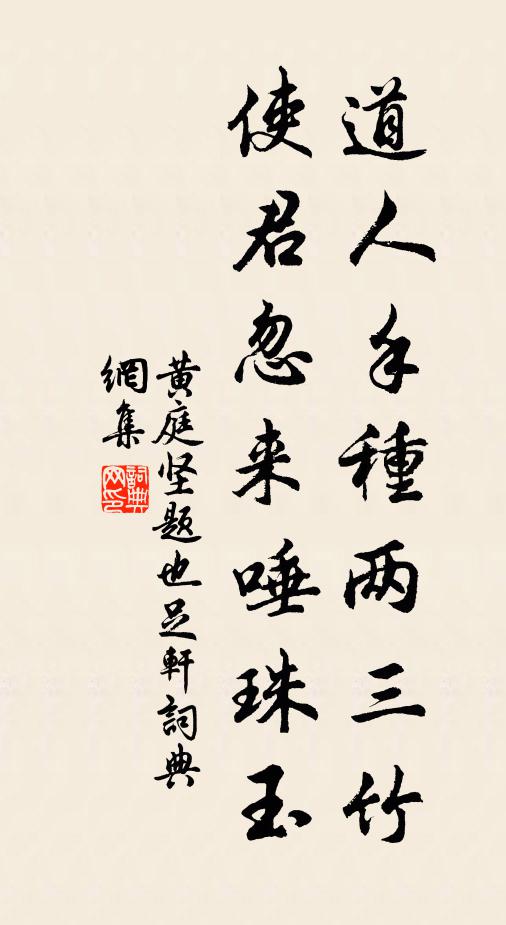 道人手種两三竹
使君忽来唾珠玉
黄庭坚题也足軒詞典
網集
詞典
网印